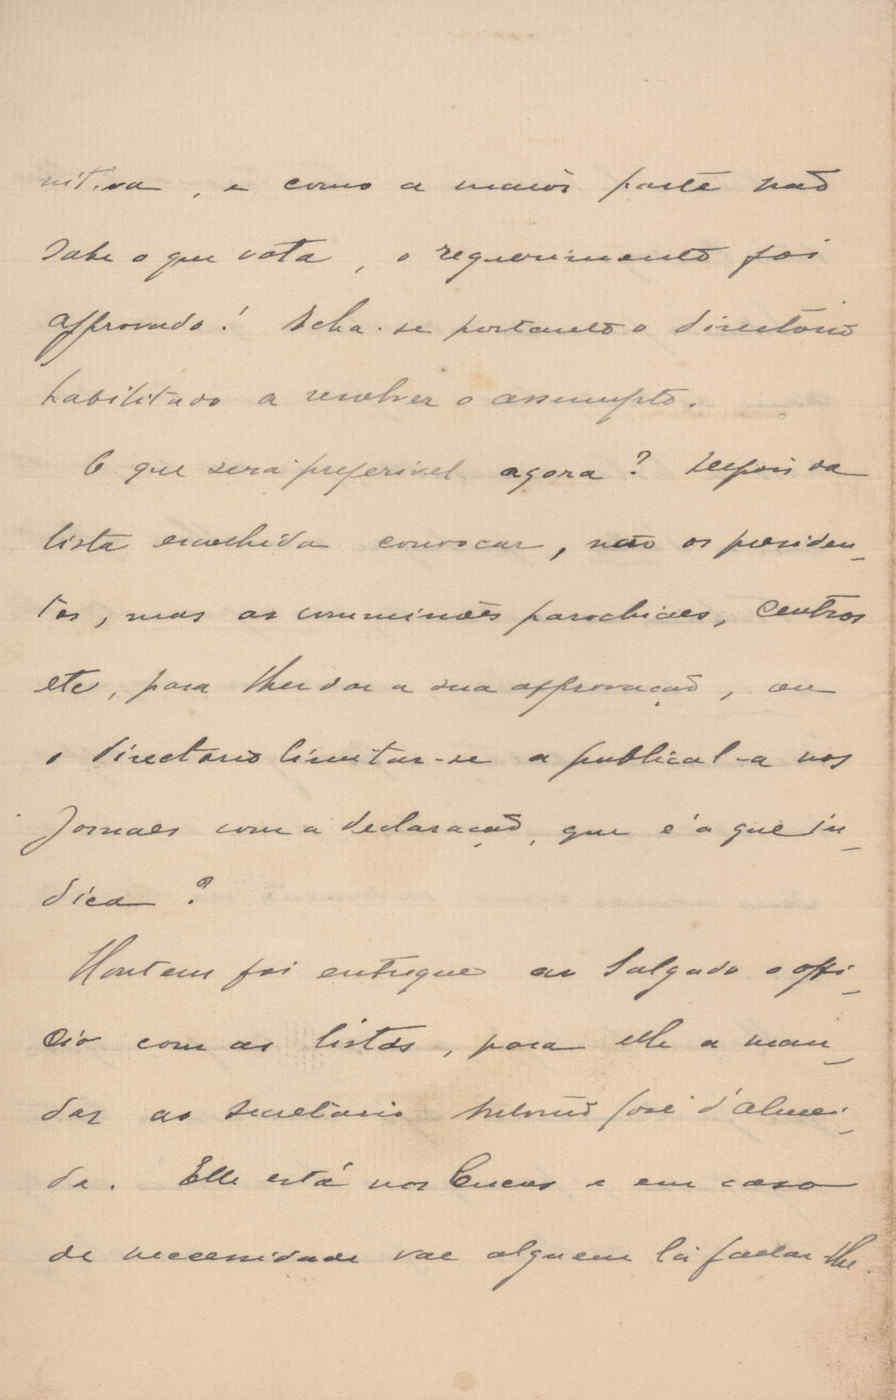 nitiva, e como a maior parte não
sabe o que vota, o requerimento foi
approvado! Acha-se portanto o directorio
habilitado a resolver o assumpto.
O que será preferivel agora? Depois da
lista escolhida convocar, não os presiden-
tes, mas as commissões parochiaes, centros
etc, para lhes dar a sua approvação, ou
o directorio limitar-se a publical-a nos
Jornaes com a declaração, que é a que in-
dica?
Hontem foi entregue ao Salgado o offi-
cio com as listas, para elle a man-
dar ao secretario Antonio José d'Almei-
da. Elle está nos Cucos e em caso
de necessidade vae alguem lá fallar lhe.